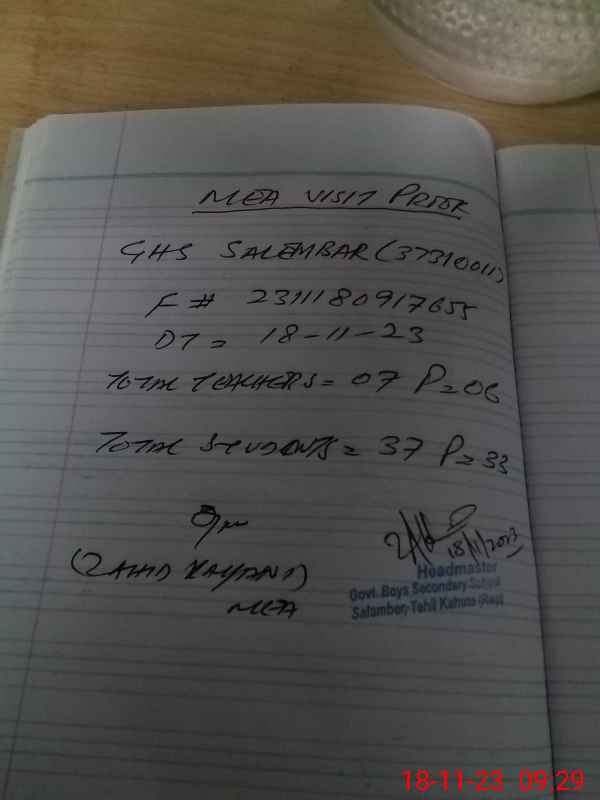 MEA VISIT PROOF
GHS SALEMBAR (37310011)
F # 2311180917655
DT = 18-11-23
TOTAL TEACHERS = 07 P = 06
TOTAL STUDENTS = 37 P = 33
18/11/2023
(ZAHID KAYANI)
MEA
Headmaster
Govt. Boys Secondary School
Salamber, Tehil Kahuta (Rwp)
18-11-23 09:29